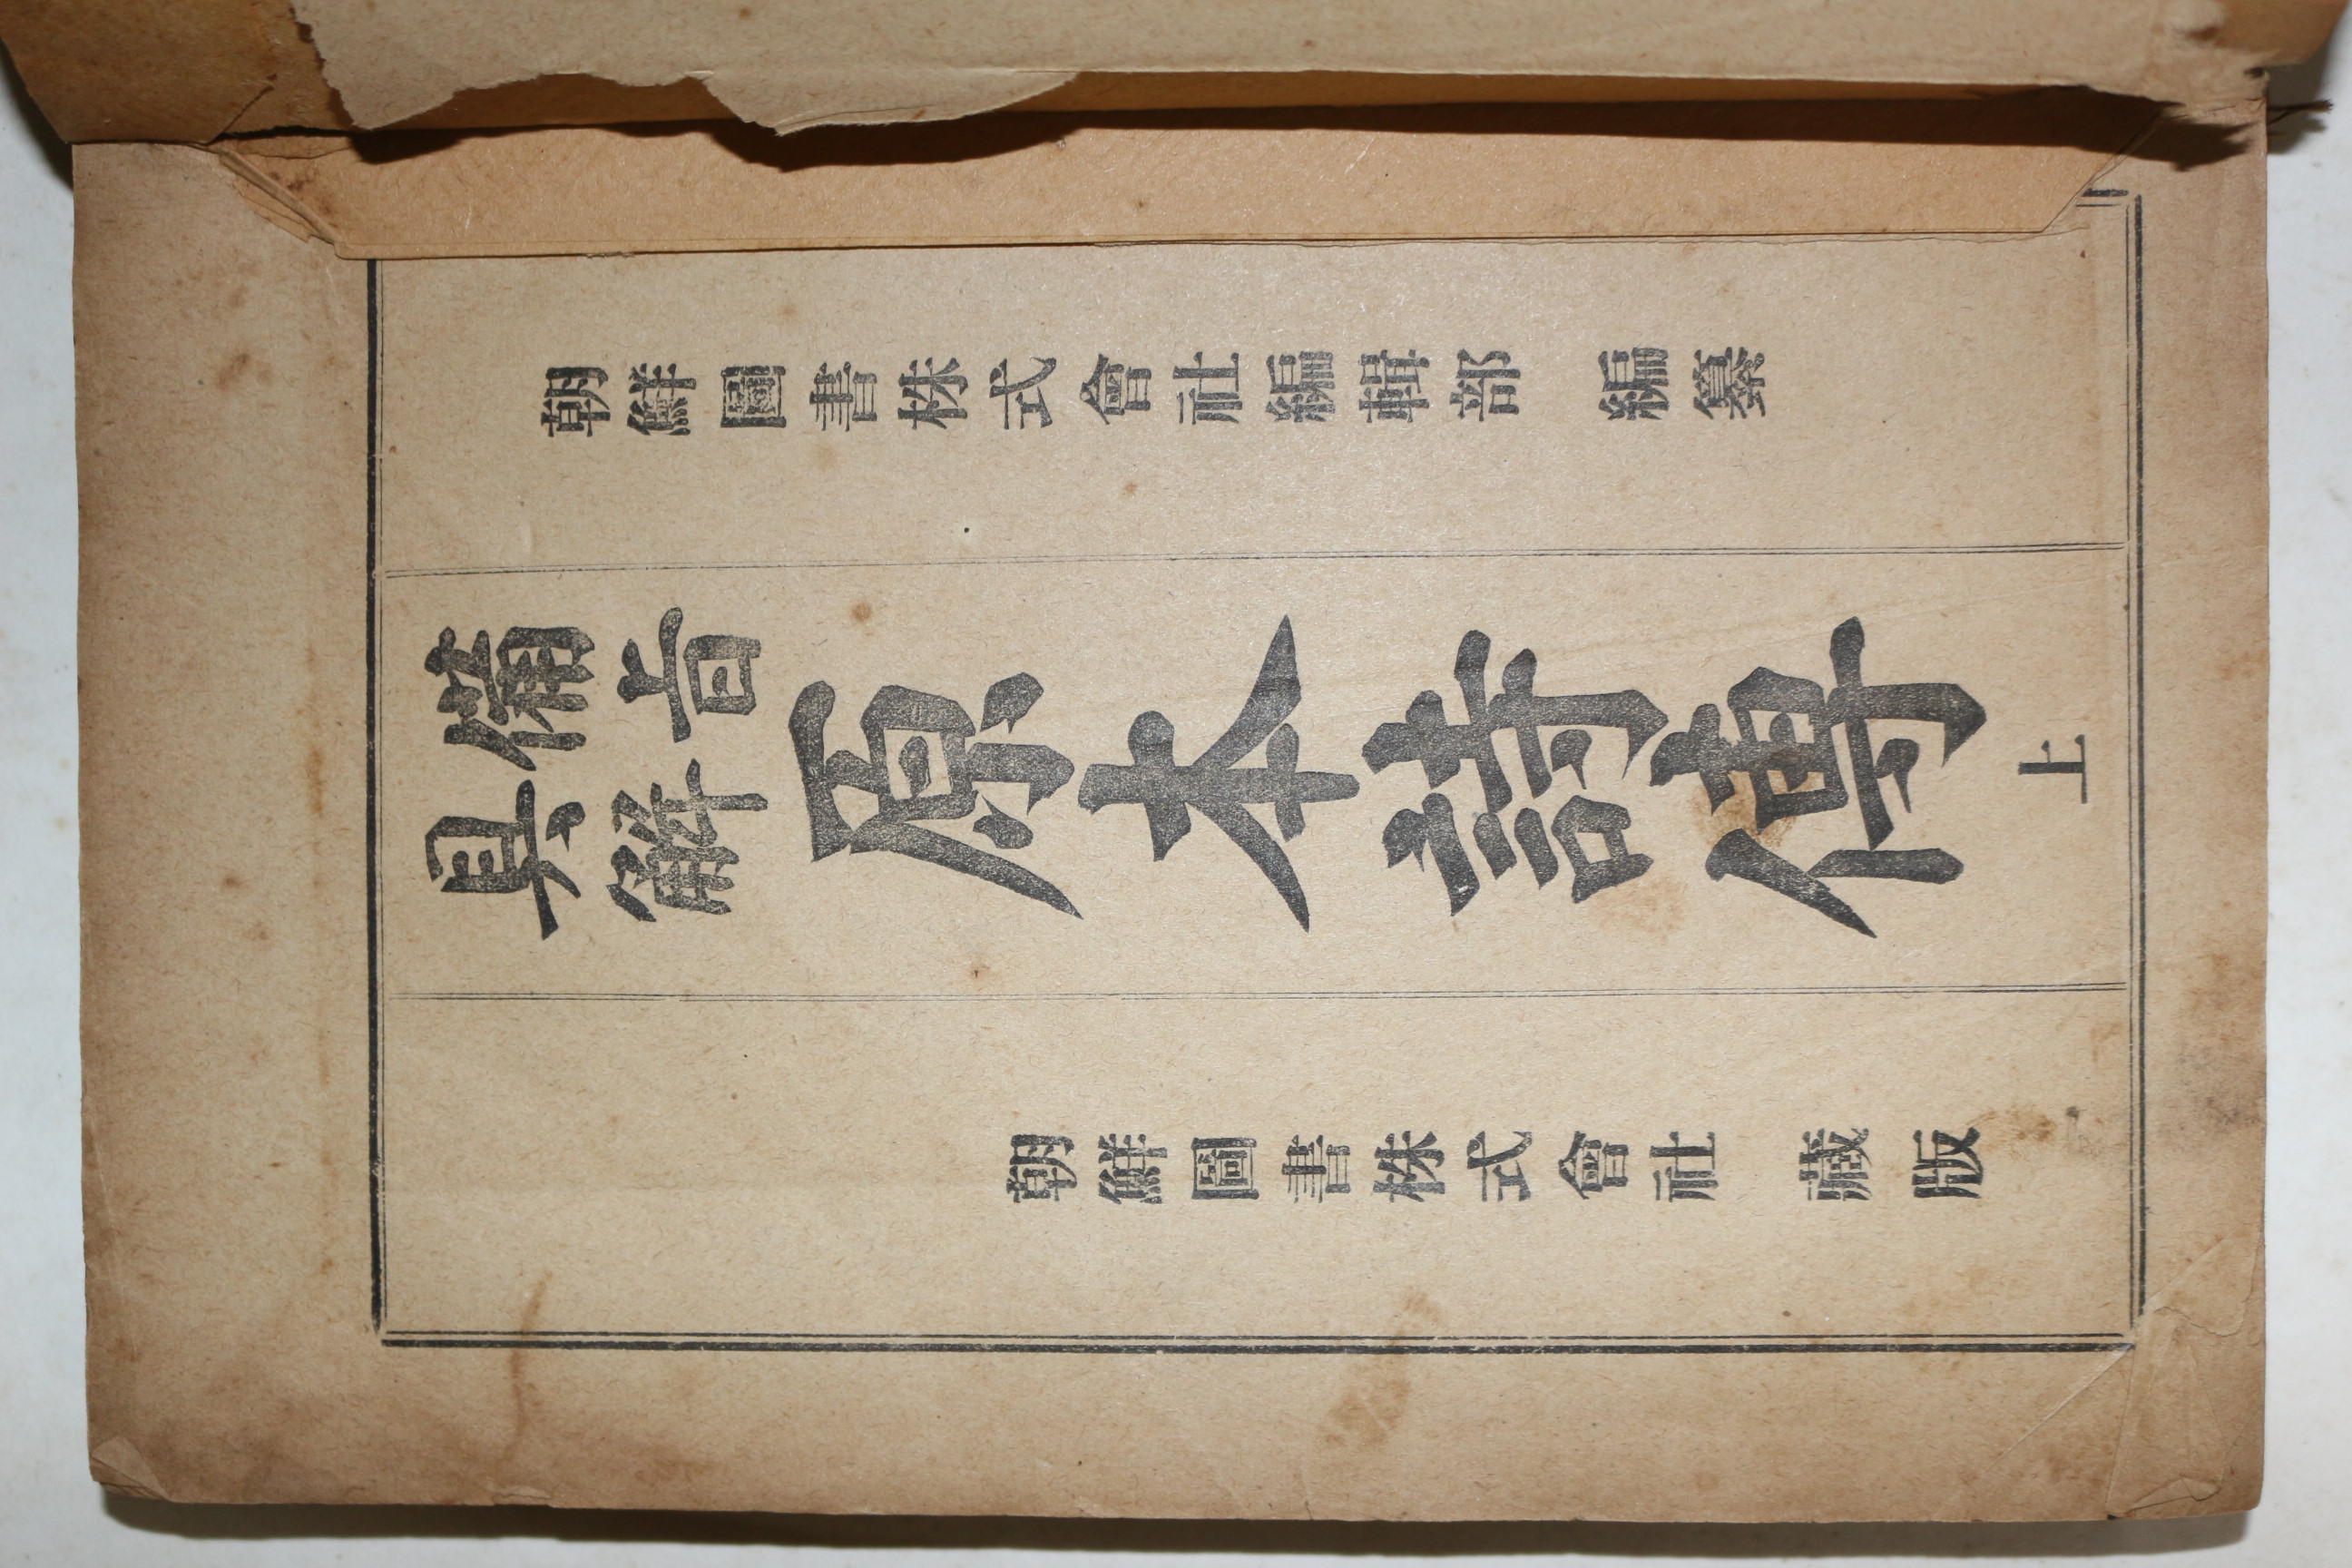 朝鮮圖書株式會社編輯部 編纂
備旨
具解
原本詩傳 上
朝鮮圖書株式會社 藏版